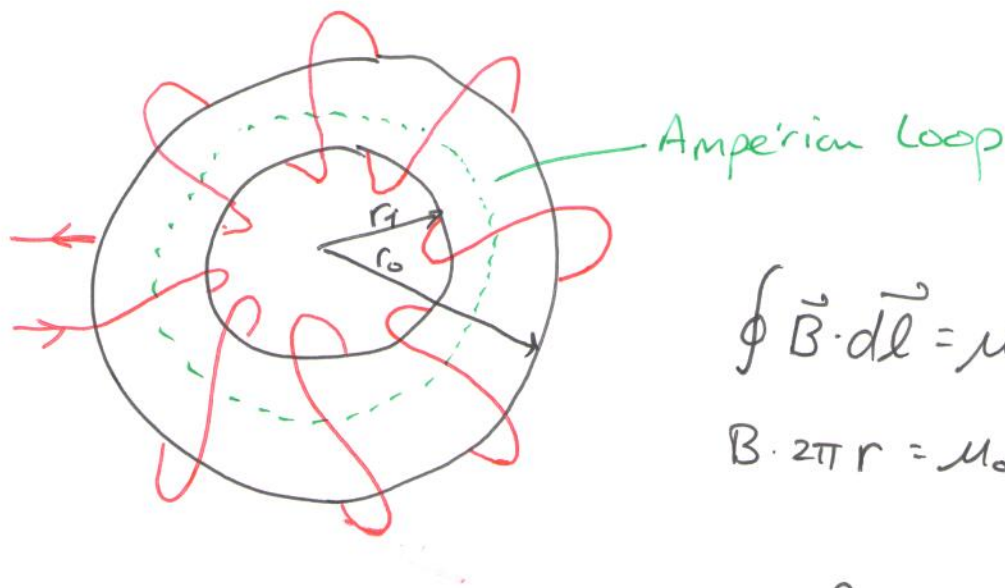 Ampérian Loop
r₁
r₀
∮ B⃗·dl⃗ = μ
B·2πr = μ₀